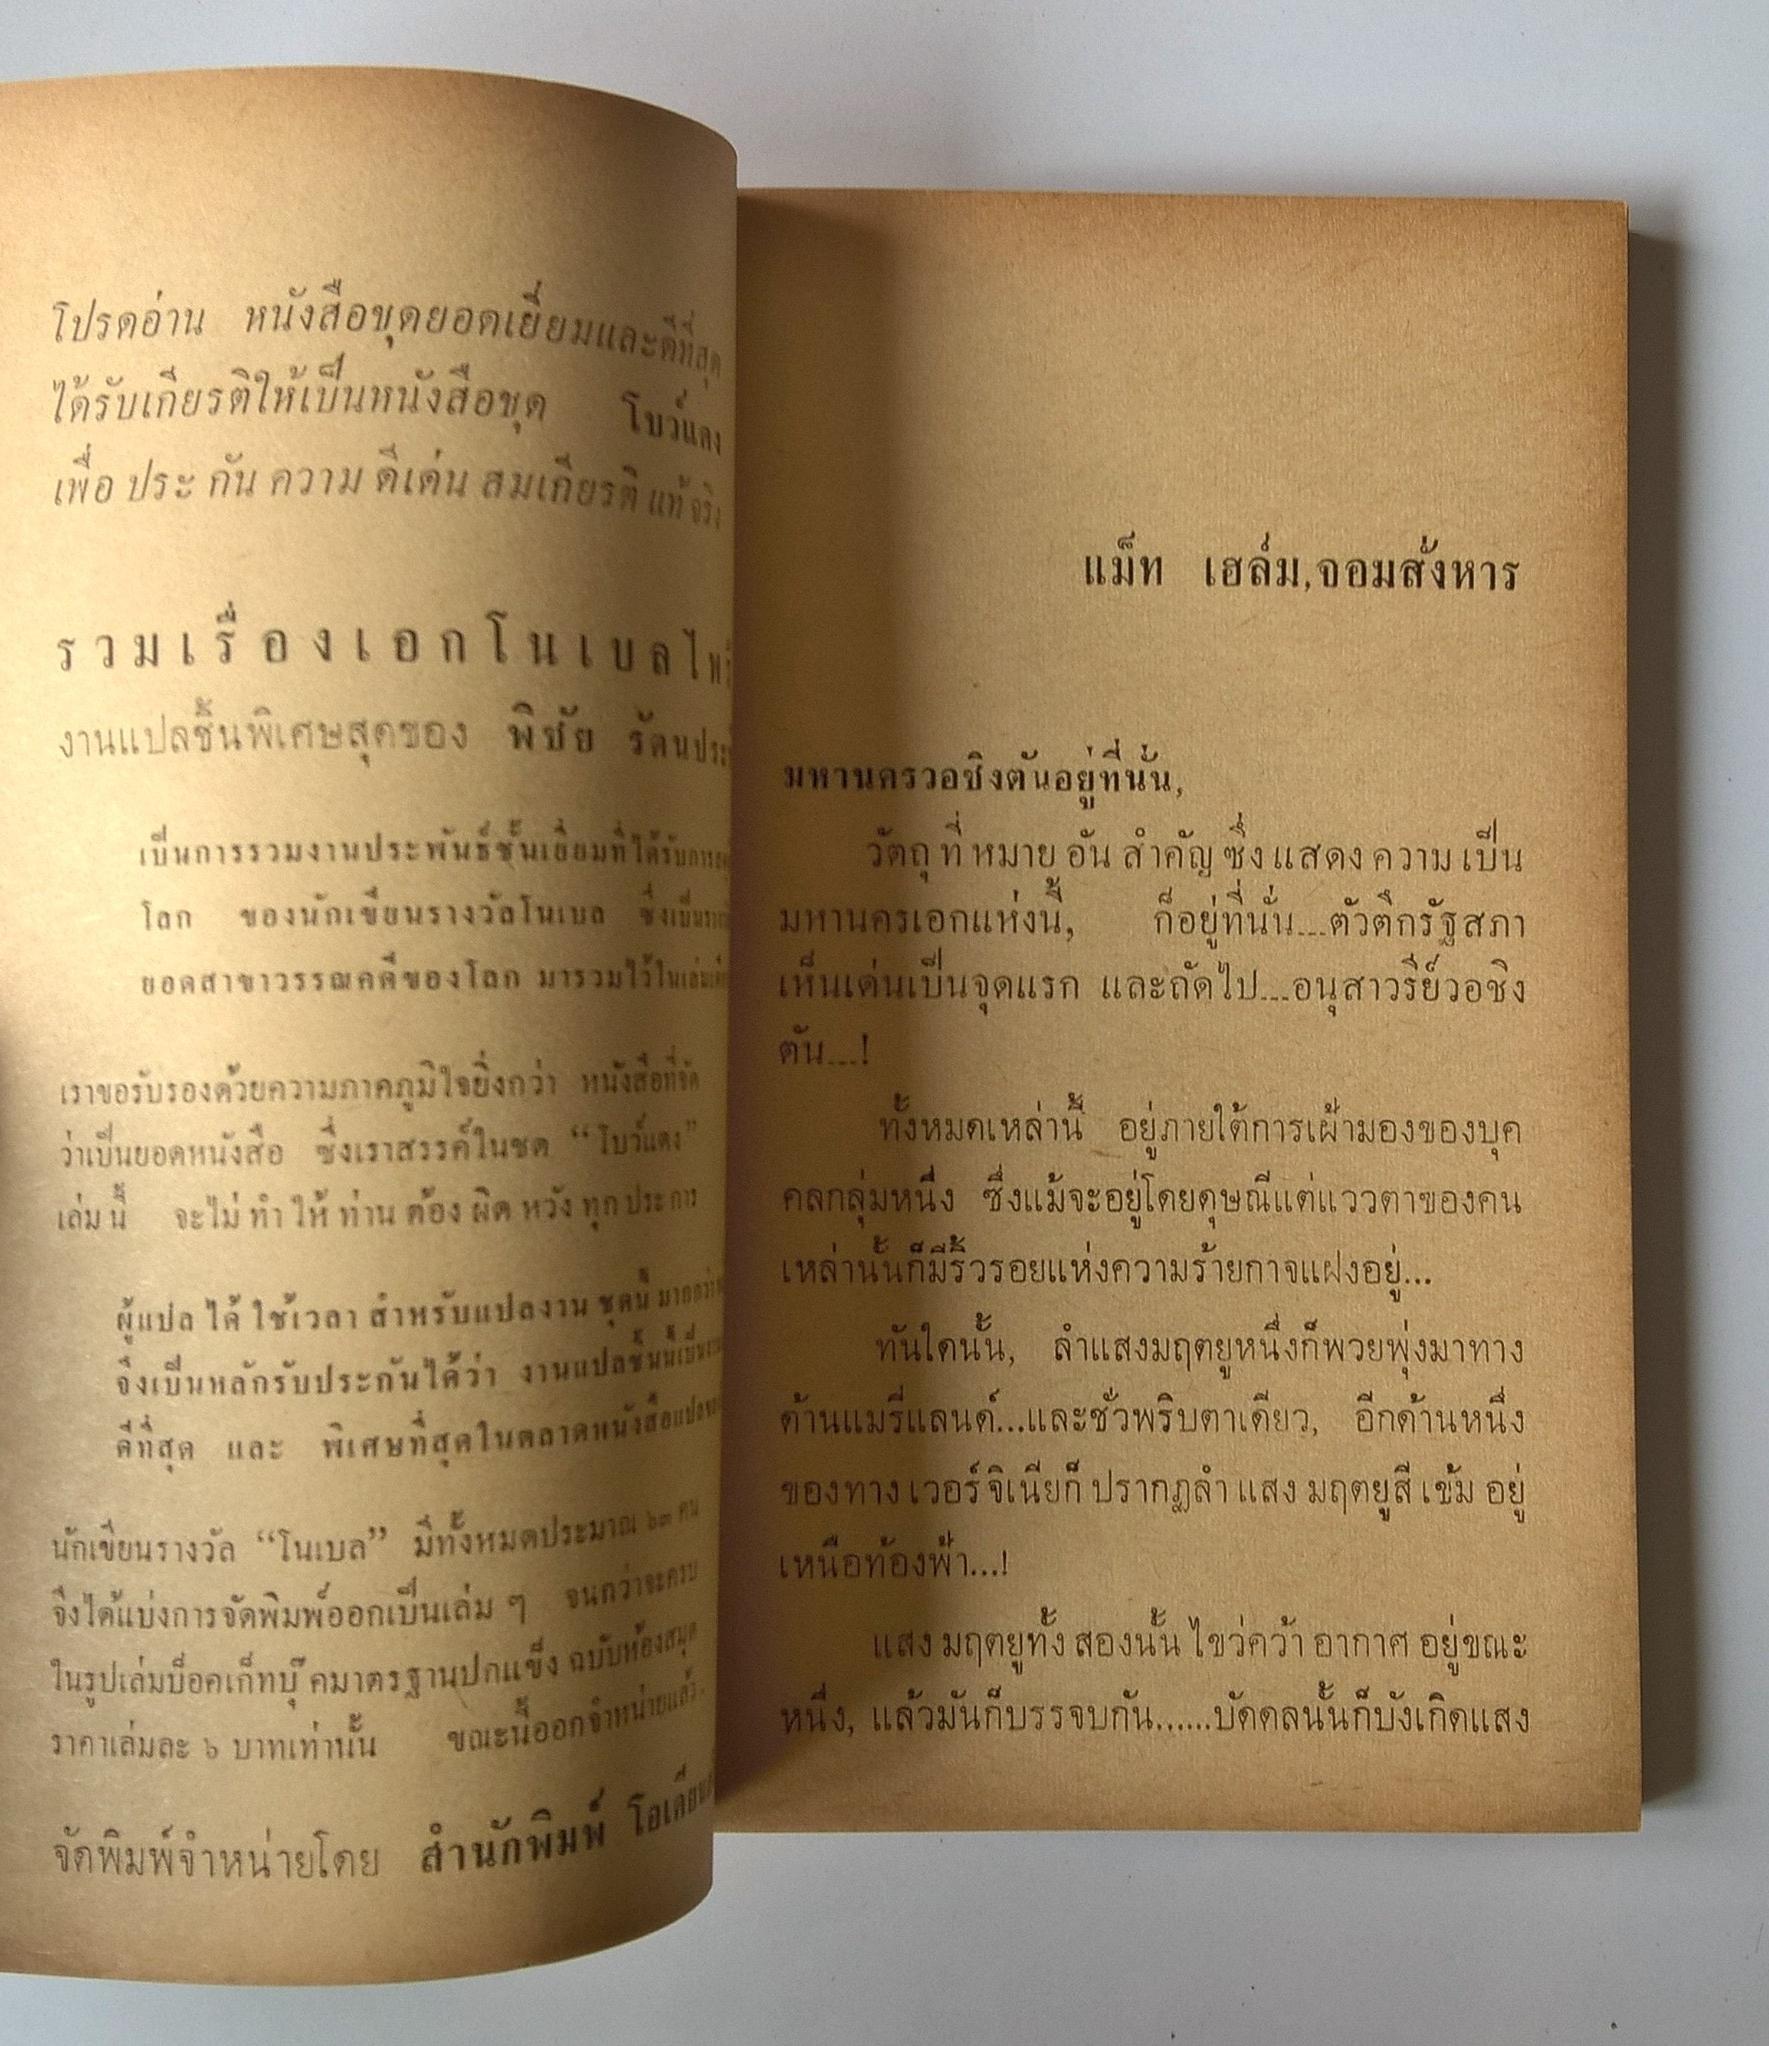 โปรดอ่าน หนังสือชุดยอดเยี่ยมและดีที่สุด
ได้รับเกียรติให้เป็นหนังสือชุด โบว์แดง
เพื่อ ประ กัน ความ ดีเด่น สมเกียรติ แท้ จริง
รวมเรื่องเอกโนเบล
งานแปลชั้นพิเศษสุดของ พิชัย
เป็นการรวมงานประพันธ์ชั้นเยี่ยมที่ได้รับการ
โลก ของนักเขียนรางวัลโนเบล ซึ่งเป็น
ยอดสาขาวรรณคดีของโลก มารวมไว้ในเล่ม
เราขอรับรองด้วยความภาคภูมิใจยิ่งกว่า หนังสือที่จัด
ว่าเป็นยอดหนังสือ ซึ่งเราสรรค์ในชุด “โบว์แดง”
เล่ม นี้ จะไม่ ทำ ให้ ท่าน ต้อง ผิด หวัง ทุก ประ การ
ผู้แปล ได้ ใช้เวลา สำหรับแปลงาน ชุดนี้
จึงเป็นหลักรับประกันได้ว่า งานแปลชั้นนี้
ดีที่สุด และ พิเศษที่สุดในตลาดหนังสือแปล
นักเขียนรางวัล “โนเบล” มีทั้งหมดประมาณ ๖๓ คน
จึงได้แบ่งการจัดพิมพ์ออกเป็นเล่ม ๆ จนกว่าจะครบ
ในรูปเล่มบ็อคเก็ทบุ๊คมาตรฐานปกแข็ง ฉบับห้องสมุด
ราคาเล่มละ ๖ บาทเท่านั้น ขณะนี้ออกจำหน่ายแล้ว.
จัดพิมพ์จำหน่ายโดย สำนักพิมพ์
แม็ท เฮล์ม,จอมสังหาร
มหานครวอชิงตันอยู่ที่นั่น,
วัตถุ ที่ หมาย อัน สำคัญ ซึ่ง แสดง ความ เป็น
มหานครเอกแห่งนี้, ก็อยู่ที่นั่น...ตัวตึกรัฐสภา
เห็นเด่นเป็นจุดแรก และถัดไป...อนุสาวรีย์วอชิง
ตัน...!
ทั้งหมดเหล่านี้ อยู่ภายใต้การเฝ้ามองของบุค
คลกลุ่มหนึ่ง ซึ่งแม้จะอยู่โดยดุษณีแต่แววตาของคน
เหล่านั้นก็มีริ้วรอยแห่งความร้ายกาจแฝงอยู่...
ทันใดนั้น, ลำแสงมฤตยูหนึ่งก็พวยพุ่งมาทาง
ด้านแมรี่แลนด์...และชั่วพริบตาเดียว, อีกด้านหนึ่ง
ของทาง เวอร์จิเนียก็ ปรากฏลำ แสง มฤตยูสี เข้ม อยู่
เหนือท้องฟ้า...!
แสง มฤตยูทั้ง สองนั้น ไขว่คว้า อากาศ อยู่ขณะ
หนึ่ง, แล้วมันก็บรรจบกัน......บัดดลนั้นก็บังเกิดแสง